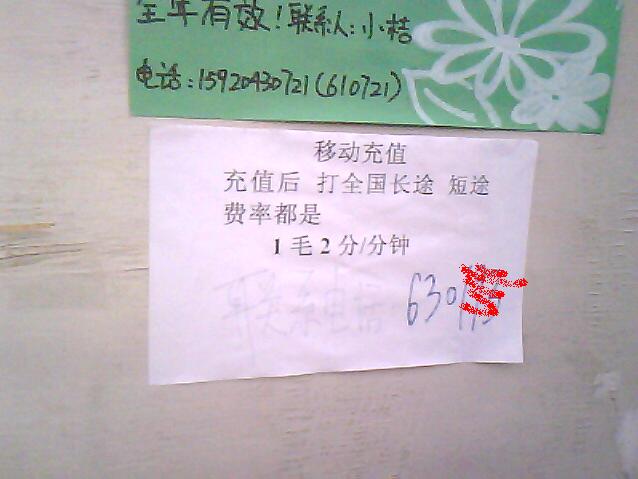 全年有效!联系人:小桔
电话:15920430721(610721)
移动充值
充值后 打全国长途 短途
费率都是
1毛2分/分钟
联系电话 630